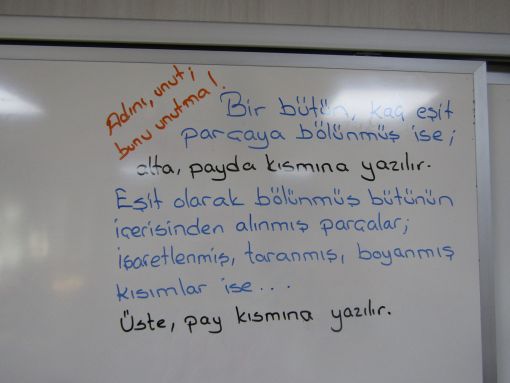 Adını, unut;
bunu unutma!
Bir bütün, kaç eşit
parçaya bölünmüş ise;
alta, payda kısmına yazılır.
Eşit olarak bölünmüş bütünün
içerisinden alınmış parçalar;
işaretlenmiş, taranmış, boyanmış
kısımlar ise...
Üste, pay kısmına yazılır.